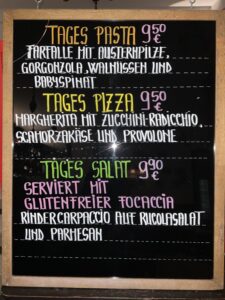 TAGES PASTA 9,50 €
FARFALLE MIT AUSTERNPILZE,
GORGONZOLA, WALNÜSSEN UND
BABYSPINAT
TAGES PIZZA 9,50 €
MARGHERITA MIT ZUCCHINI-RADICCHIO,
SCAMORZAKÄSE UND PROVOLONE
TAGES SALAT 9,90 €
SERVIERT MIT
GLUTENFREIER FOCACCIA
RINDERCARPACCIO AUF RUCOLASALAT
UND PARMESAN